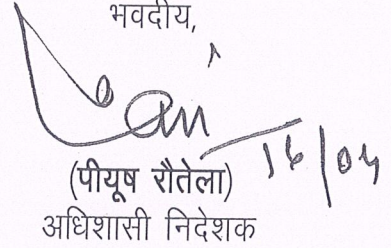 भवदीय,
16/04
(पीयूष रौतेला)
अधिशासी निदेशक